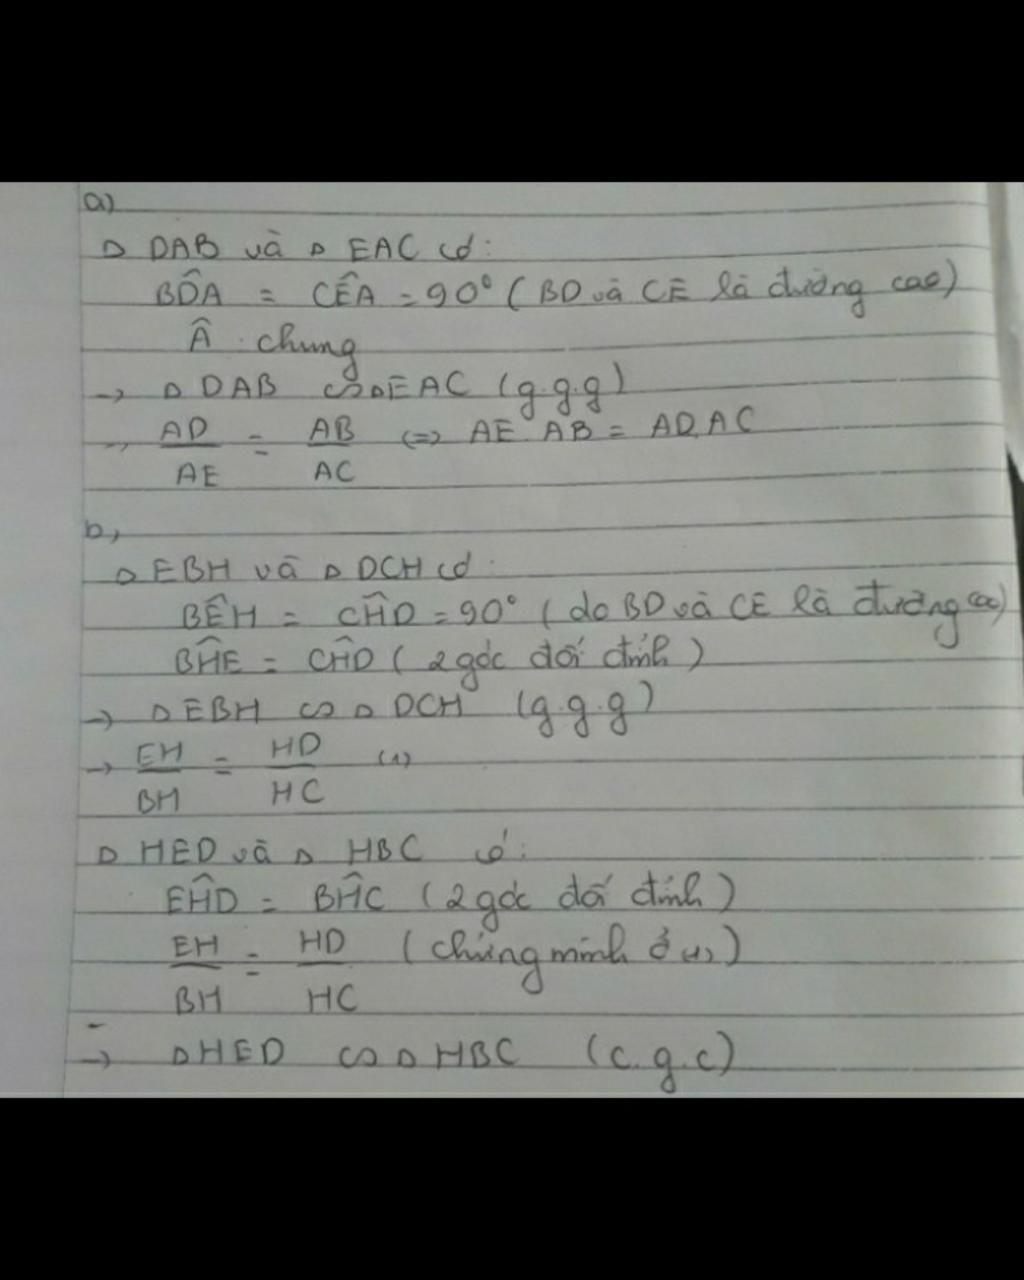 a)
△ DAB và △ EAC có:
BD̂A = CÊA = 90° (BD và CE là đường cao)
Â chung
→ △DAB ∽ △EAC (g.g.g)
→ AD/AE = AB/AC <=> AE.AB = AD.AC
b,
△ EBH và △ DCH có:
BÊH = CĤD = 90° (do BD và CE là đường cao)
BĤE = CĤD (2 góc đối đỉnh)
→ △EBH ∽ △ DCH (g.g.g)
→ EH/BH = HD/HC (1)
△ HED và △ HBC có:
EĤD = BĤC (2 góc đối đỉnh)
EH/BH = HD/HC (chứng minh ở (1))
→ △HED ∽ △HBC (c.g.c)